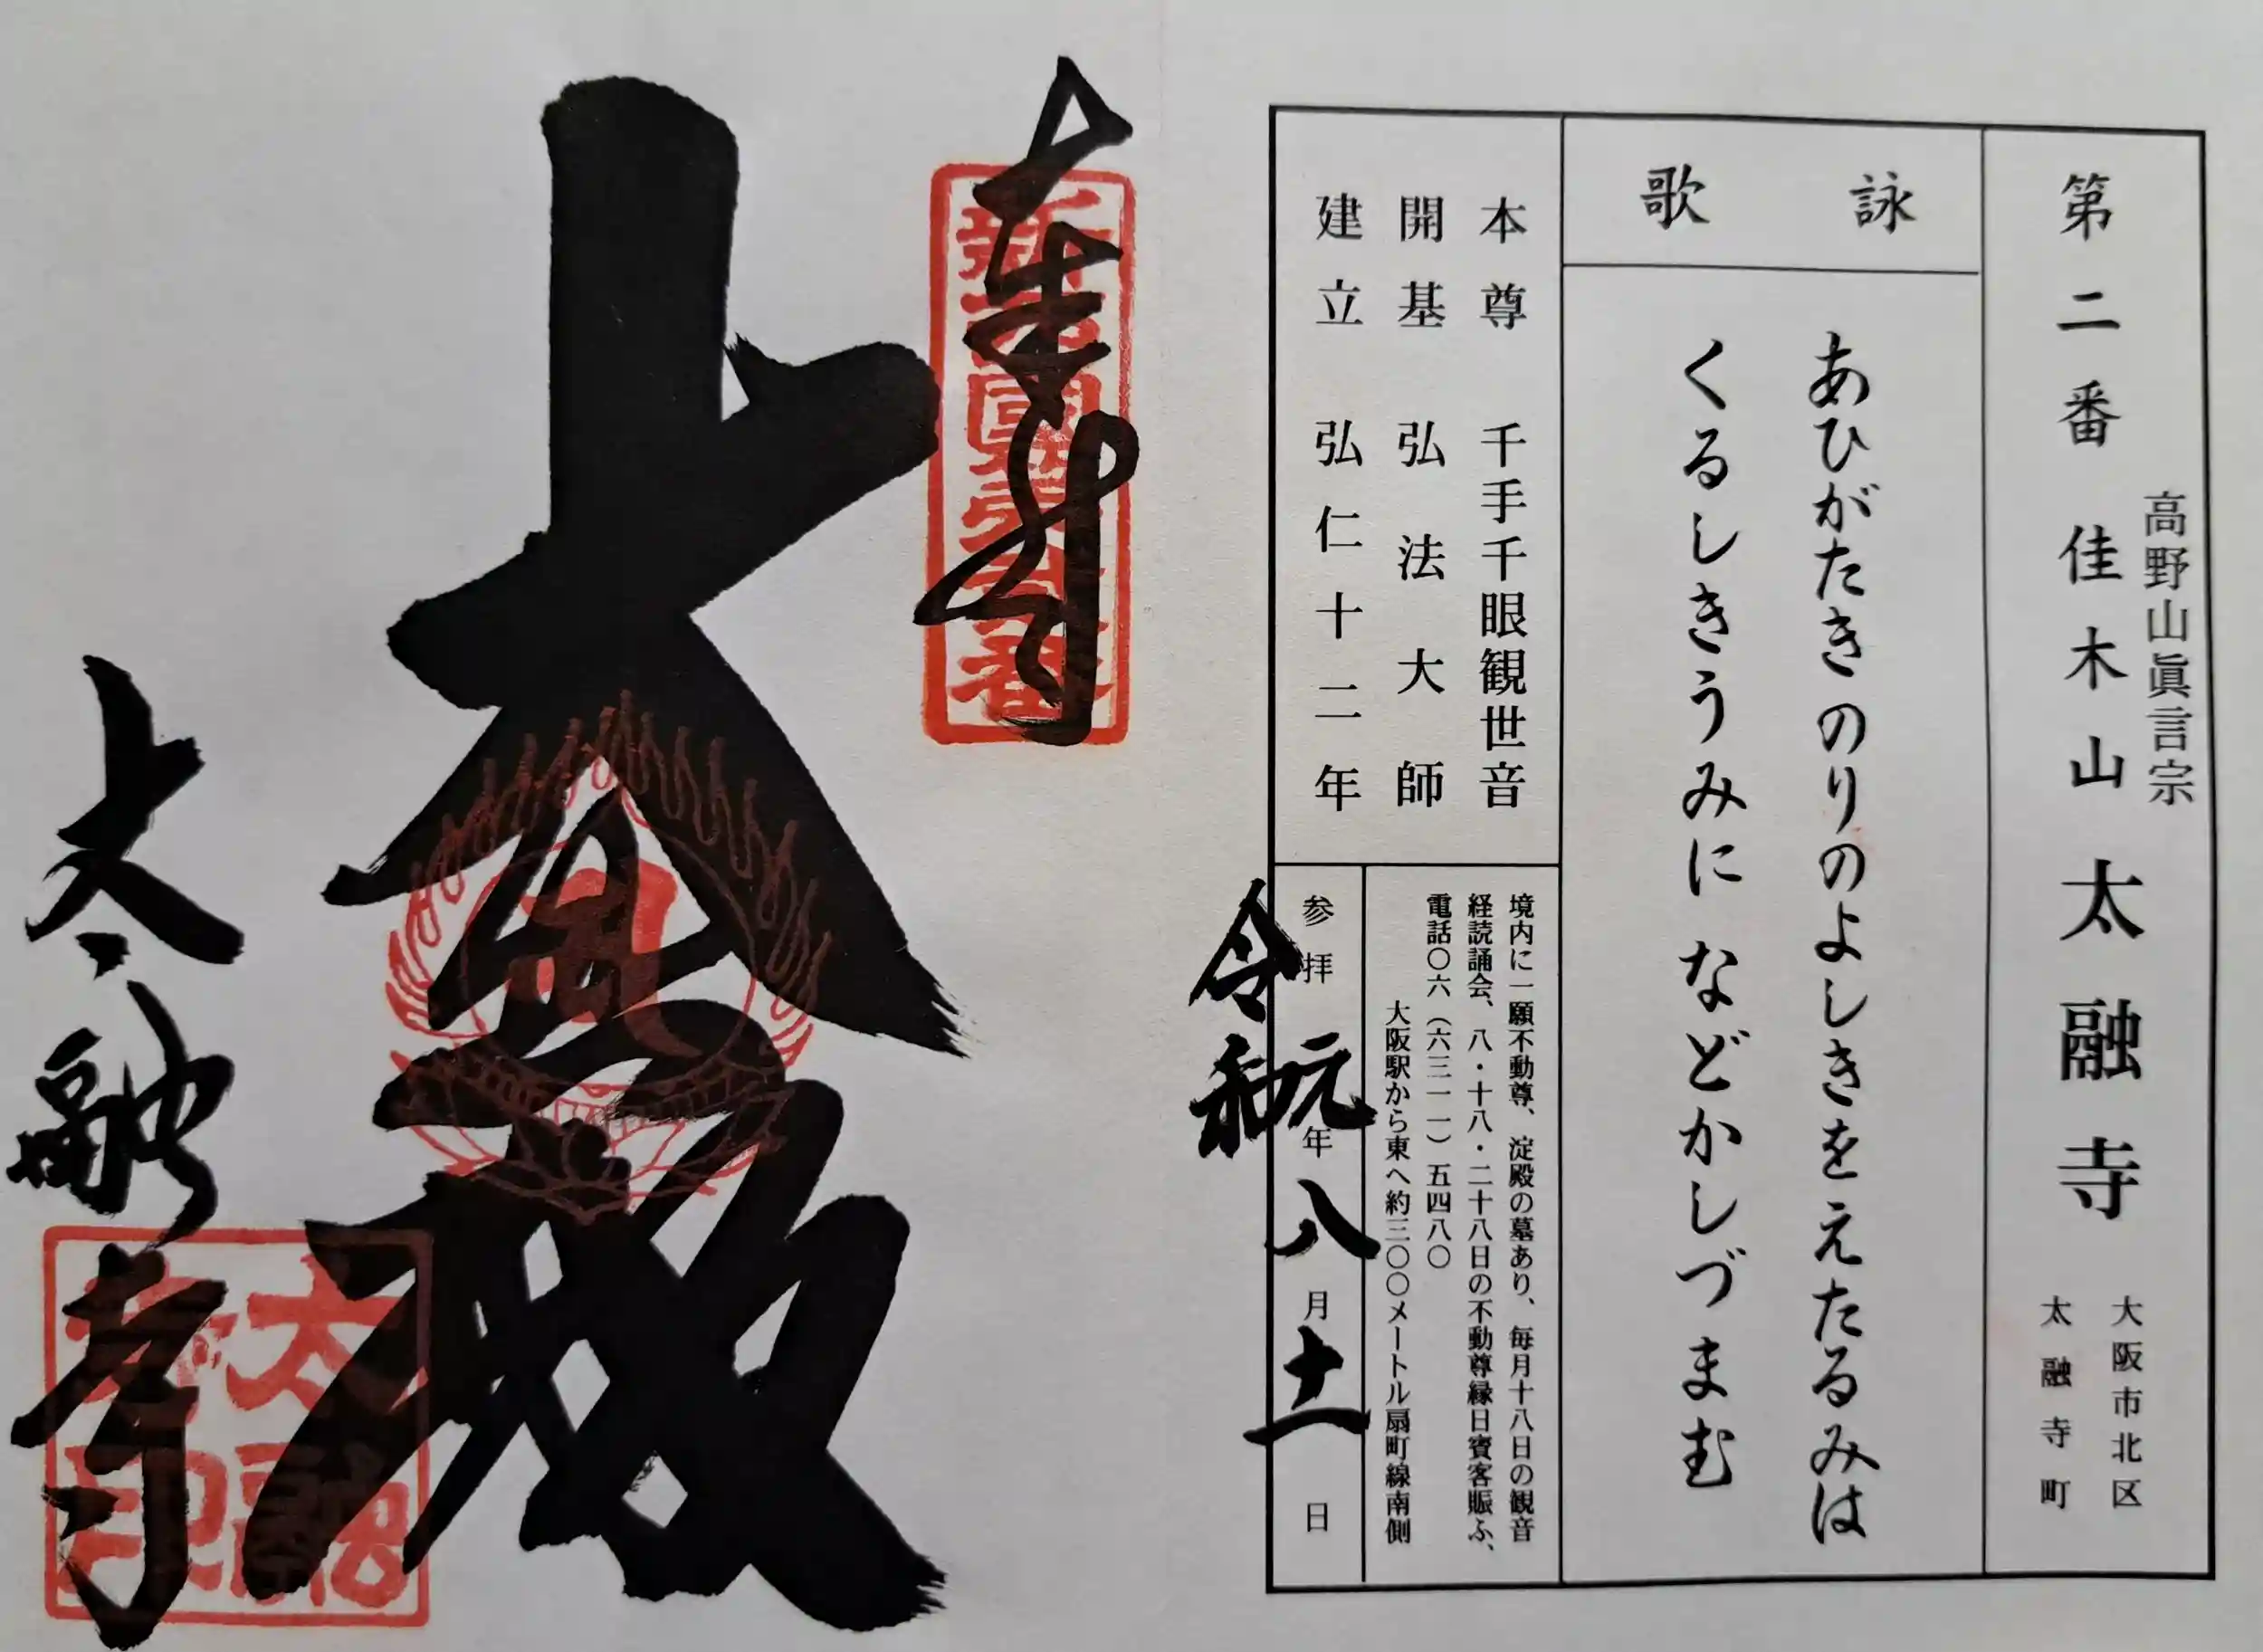 第二番 佳木山 太融寺
高野山眞言宗
大阪市北区
太融寺町
詠歌
あひがたき のりのよしきをえたるみは
くるしきうみに などかしづまむ
本尊 千手千眼観世音
開基 弘法大師
建立 弘仁十二年
境内に一願不動尊、淀殿の墓あり、毎月十八日の観音
経読誦会、八・十八・二十八日の不動尊縁日賓客賑ふ、
電話〇六（六三一一）五四八〇
大阪駅から東へ約三〇〇メートル扇町線南側
参拝 令和元年八月十一日
奉拝
新西國第二番
大悲殿
太融寺
太融寺印